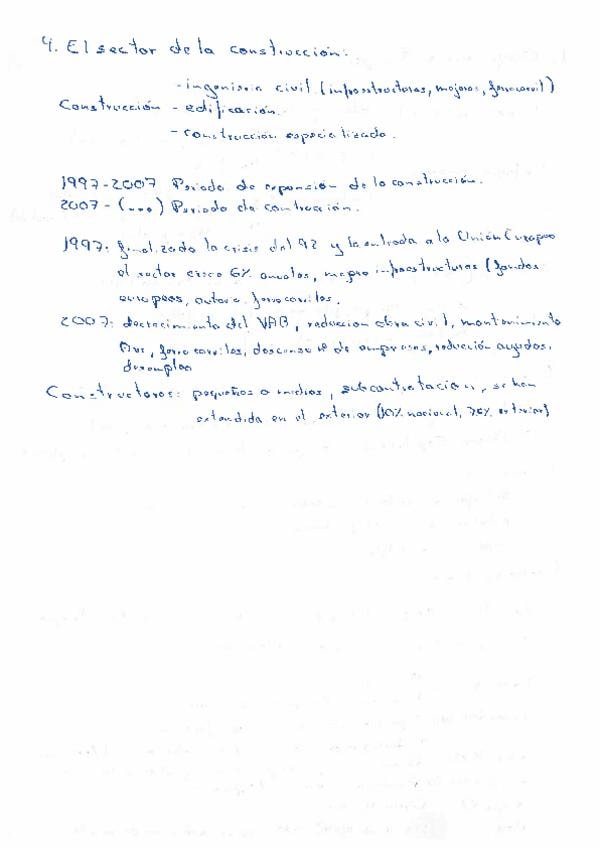 4. El sector de la construcción:
- ingeniería civil (infraestructuras, mejoras, ferrocarril)
Construcción - edificación.
- construcción especializada.
1997-2007 Periodo de expansión de la construcción.
2007 - (...) Periodo de contracción.
1997: finalizada la crisis del 92 y la entrada a la Unión Europea
el sector crece 6% anuales, macro infraestructuras (fondos
europeos, autovía, ferrocarriles.
2007: decrecimiento del VAB, reducción obra civil, mantenimiento
Ave, ferrocarriles, descenso nº de empresas, reducción ayudas,
desempleo
Constructoras: pequeñas o medias, subcontratación, se han
extendida en el exterior (30% nacional, 70% exterior)